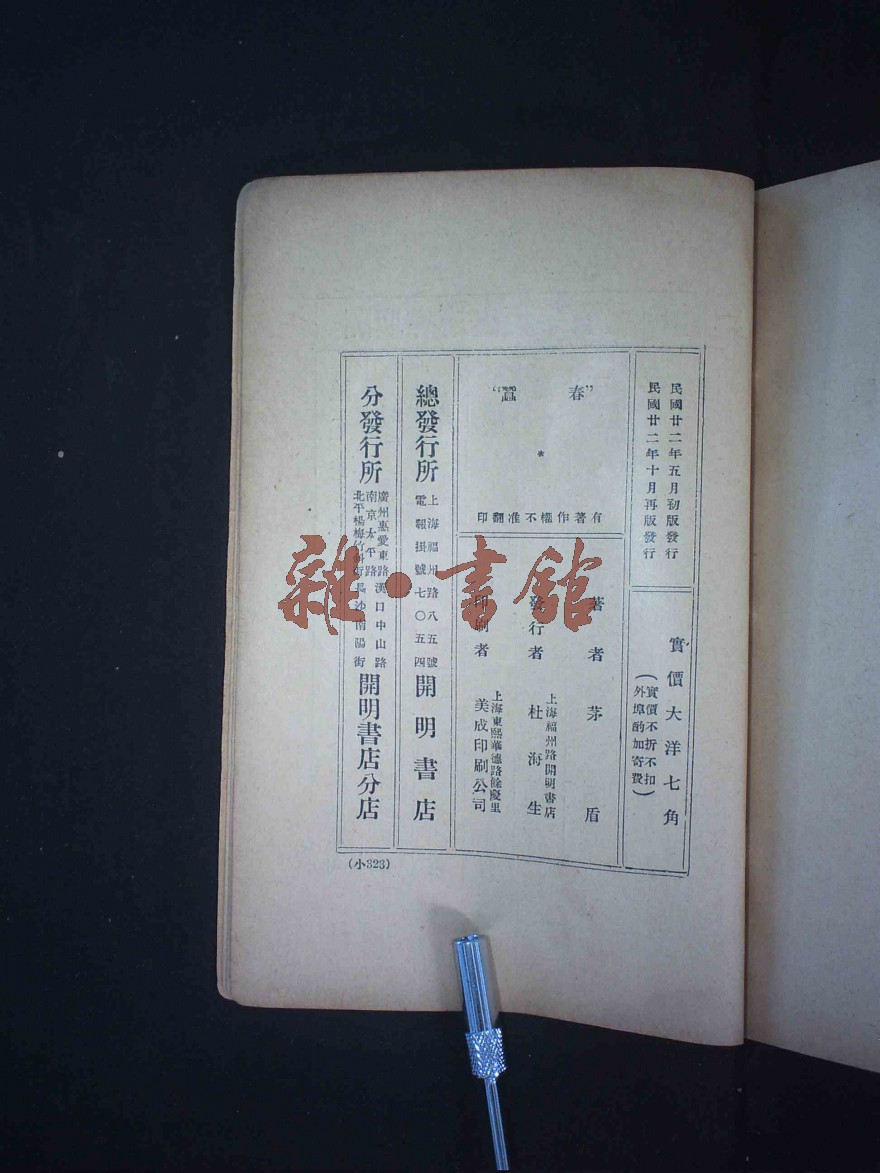 民國廿二年五月初版發行
民國廿二年十月再版發行
實價大洋七角
(實價不折不扣
外埠酌加寄費)
"春蠶"
*
有著作權不准翻印
著者 茅盾
發行者 杜海生
上海福州路開明書店
印刷者 美成印刷公司
上海東熙華德路餘慶里
總發行所
上海福州路八五號
電報掛號七〇五四
開明書店
分發行所
廣州惠愛東路 漢口中山路
南京太平路
北平楊梅竹斜街 長沙南陽街
開明書店分店
(小323)
雜·書館